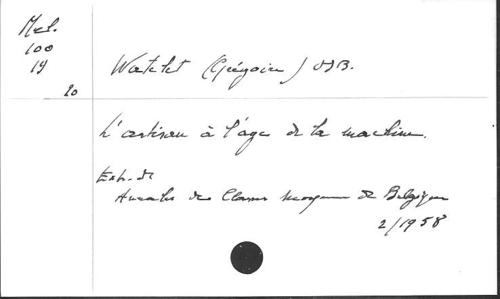 Mel.
100
19
20
Watelet (Grégoire) OSB.
L'artisan à l'age de la machine.
Ext. de
Annales des Classes moyennes de Belgique
2/1958